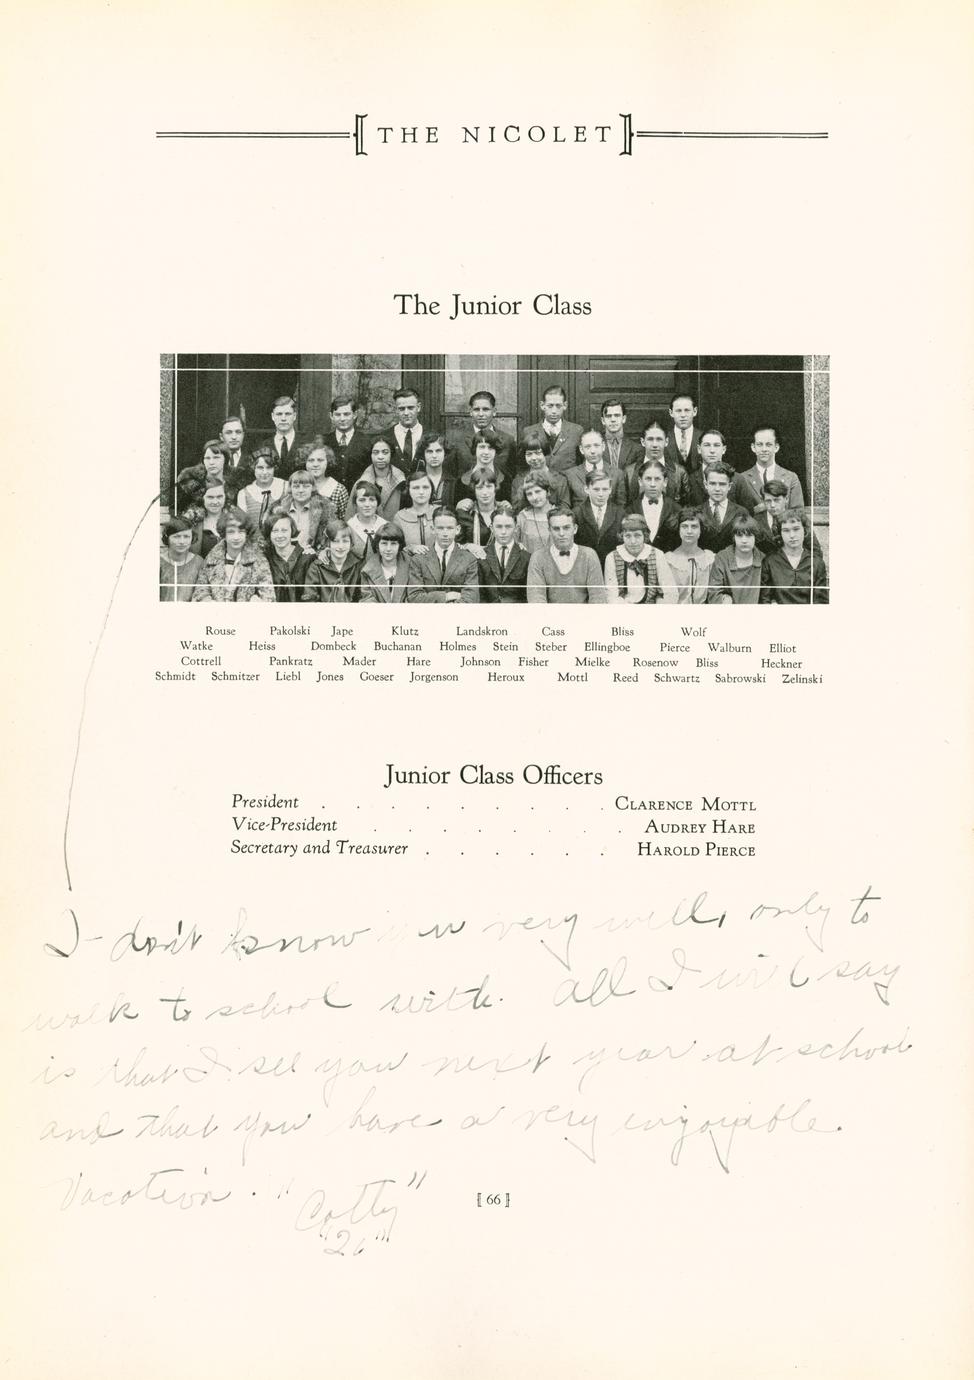 THE NICOLET
The Junior Class
Rouse Pakolski Jape Klutz Landskron Cass Bliss Wolf
Watke Heiss Dombeck Buchanan Holmes Stein Steber Ellingboe Pierce Walburn Elliot
Cottrell Pankratz Mader Hare Johnson Fisher Mielke Rosenow Bliss Heckner
Schmidt Schmitzer Liebl Jones Goeser Jorgenson Heroux Mottl Reed Schwartz Sabrowski Zelinski
Junior Class Officers
President . . . . . . . . . CLARENCE MOTTL
Vice-President . . . . . . . AUDREY HARE
Secretary and Treasurer . . . . . . HAROLD PIERCE
I don't know u very well, only to
walk to school with. All I will say
is that I see you next year at school
and that you have a very enjoyable.
Vacation. "Cotty"
"26"
66